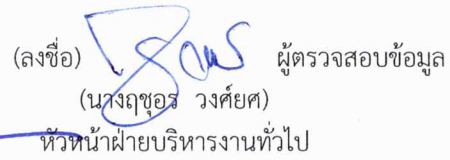 (ลงชื่อ) ผู้ตรวจสอบข้อมูล
(นางฤชุอร วงศ์ยศ)
หัวหน้าฝ่ายบริหารงานทั่วไป